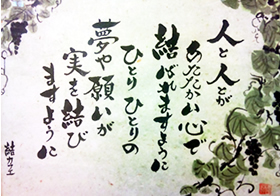 人と人とが
あたたかい心で
結ばれますように
ひとりひとりの
夢や願いが
実を結び
ますように